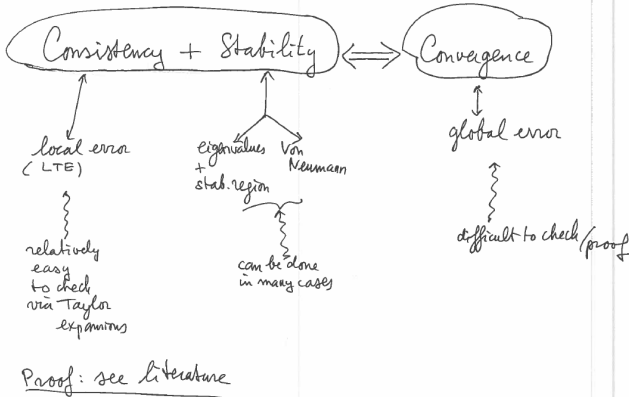 Consistency + Stability ⟺ Convergence
local error
(LTE)
eigenvalues
+
stab. region
Von
Neumann
global error
relatively
easy
to check
via Taylor
expansions
can be done
in many cases
difficult to check/proof
Proof: see literature